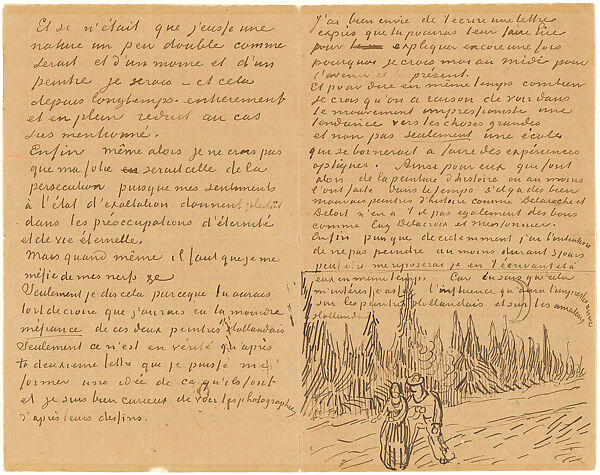 Et si n'était que j'eusse une
nature un peu double comme
serait et d'un moine et d'un
peintre je serais – et cela
depuis longtemps – entièrement
et en plein reduit au cas
sus mentionné.
Enfin même alors je ne crois pas
que ma folie serait celle de la
persecution puisque mes sentiments
à l'état d'exaltation donnent plutôt
dans les préoccupations d'éternité
et de vie éternelle.
Mais quand même il faut que je me
méfie de mes nerfs
Seulement je dis cela parceque tu aurais
tort de croire que j'aurais eu la moindre
méfiance de ces deux peintres Hollandais
Seulement ce n'est en vérité qu'après
ta deuxieme lettre que je puisse me
former une idée de ce qu'ils font
et je suis bien curieux de voir les photographies
d'après leurs dessins.
J'ai bien envie de t'ecrire une lettre
exprès que tu pourras leur faire lire
pour expliquer encore une fois
pourquoi je crois moi au midi pour
l'avenir et le présent.
Et pour dire en même temps combien
je crois qu'on a raison de voir dans
le mouvement impressioniste une
tendance vers les choses grandes
et non pas seulement une école
qui se bornerait a faire des expériences
optiques. Ainsi pour eux qui font
alors de la peinture d'histoire ou au moins
l'ont faite dans le temps s'il y a des bien
mauvais peintres d'histoire comme Delaroche et
Delort n'en a t'il pas egalement des bons
comme Eug Delacroix et Meissonier.
Enfin puisque decidemment j'ai l'intention
de ne pas peindre au moins durant 3 jours
peut être me reposerai je en t'ecrivant à
eux en même temps. Car tu sais que cela
m'interesse assez l'influence qu'aura l'impressionisme
sur les peintres Hollandais et sur les amateurs
Hollandais